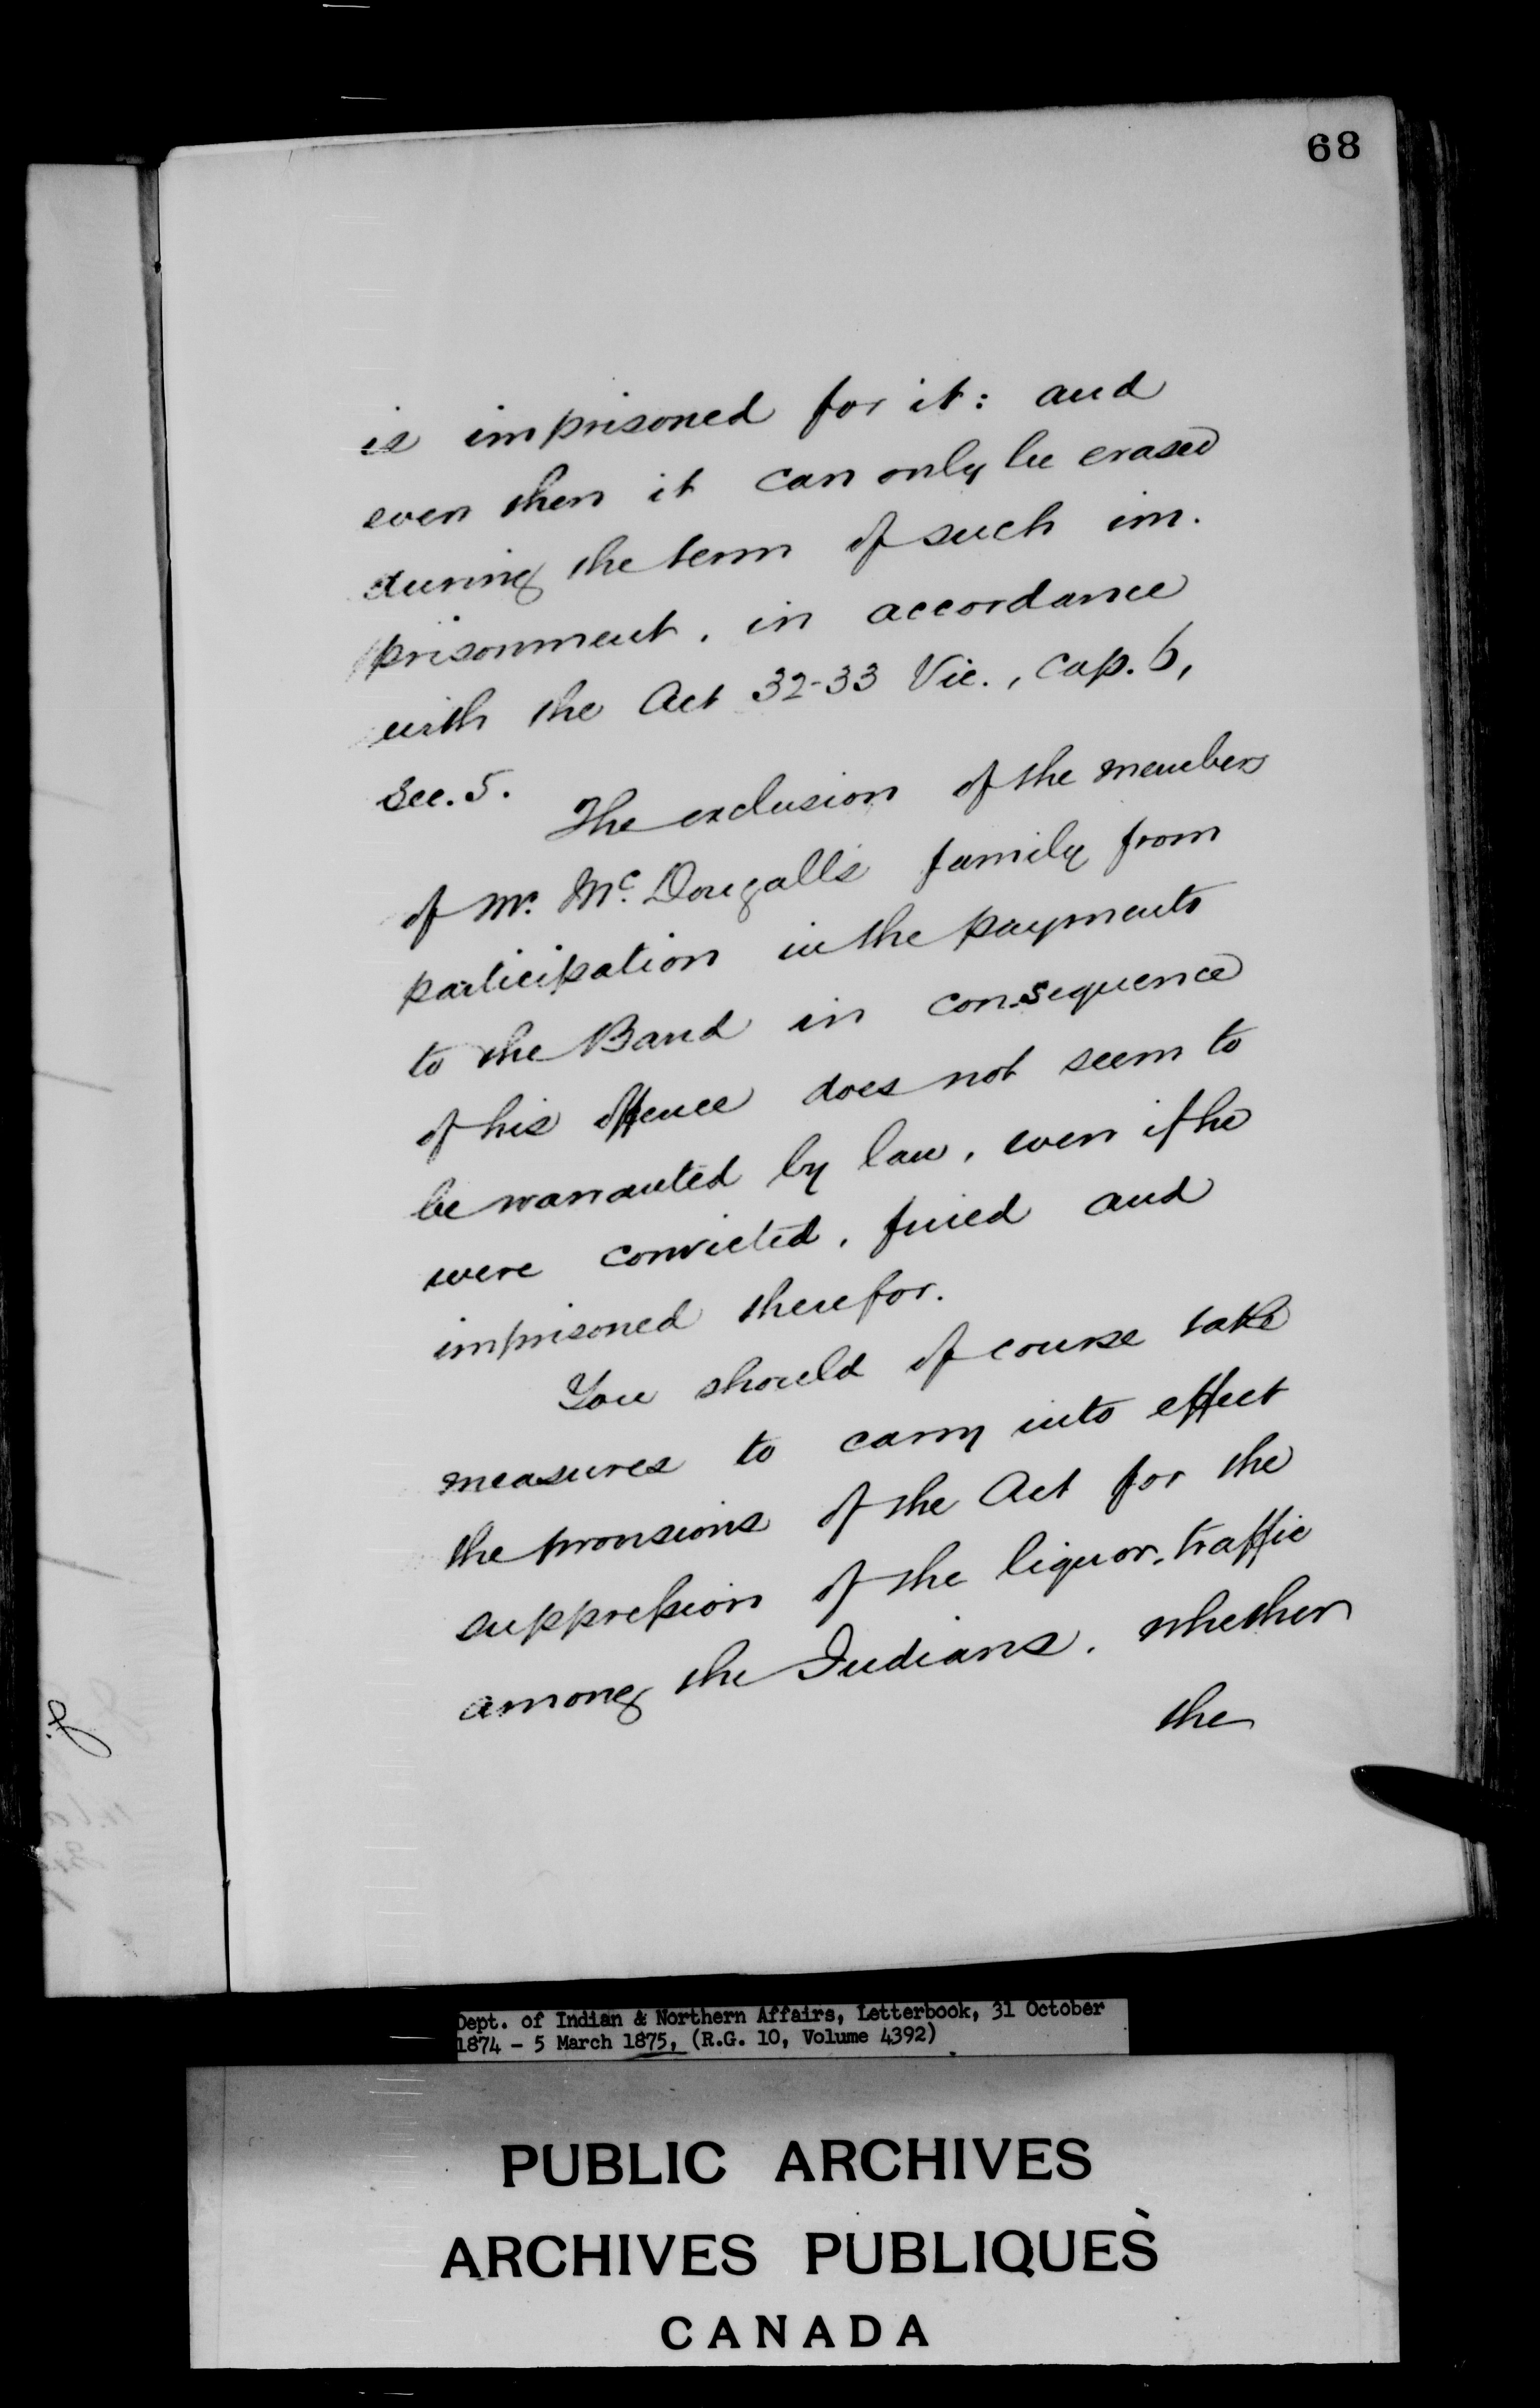 68
is imprisoned for it: and
even then it can only be erased
during the term of such im-
prisonment, in accordance
with the Act 32-33 Vic., Cap. 6,
Sec. 5.
The exclusion of the members
of Mr. McDougall's family from
participation in the payments
to the Band in consequence
of his offence does not seem to
be warranted by law, even if he
were convicted, fined and
imprisoned therefor.
You should of course take
measures to carry into effect
the provisions of the Act for the
suppression of the liquor-traffic
among the Indians, whether
the
Dept. of Indian & Northern Affairs, Letterbook, 31 October
1874 - 5 March 1875, (R.G. 10, Volume 4392)
PUBLIC ARCHIVES
ARCHIVES PUBLIQUES
CANADA